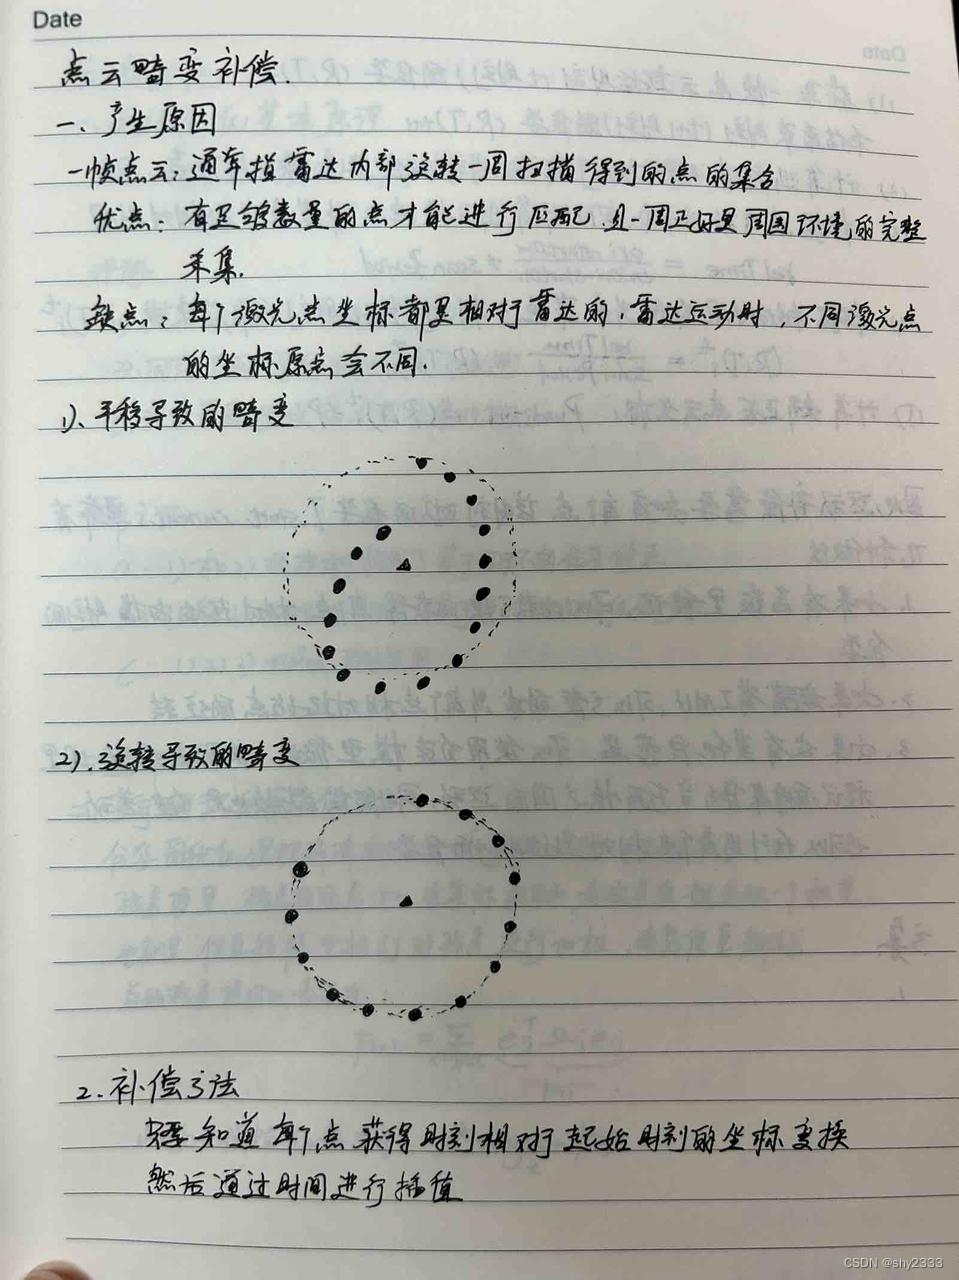 Date
点云畸变补偿.
一、产生原因
一帧点云：通常指雷达内部旋转一周扫描得到的点的集合
优点：有足够数量的点才能进行匹配，且一周正好是周围环境的完整
采集.
缺点：每个激光点坐标都是相对于雷达的，雷达运动时，不同激光点
的坐标原点会不同.
1)、平移导致的畸变
2).旋转导致的畸变
2.补偿方法
需要知道每个点获得时刻相对于起始时刻的坐标变换
然后通过时间进行插值
CSDN @shy2333